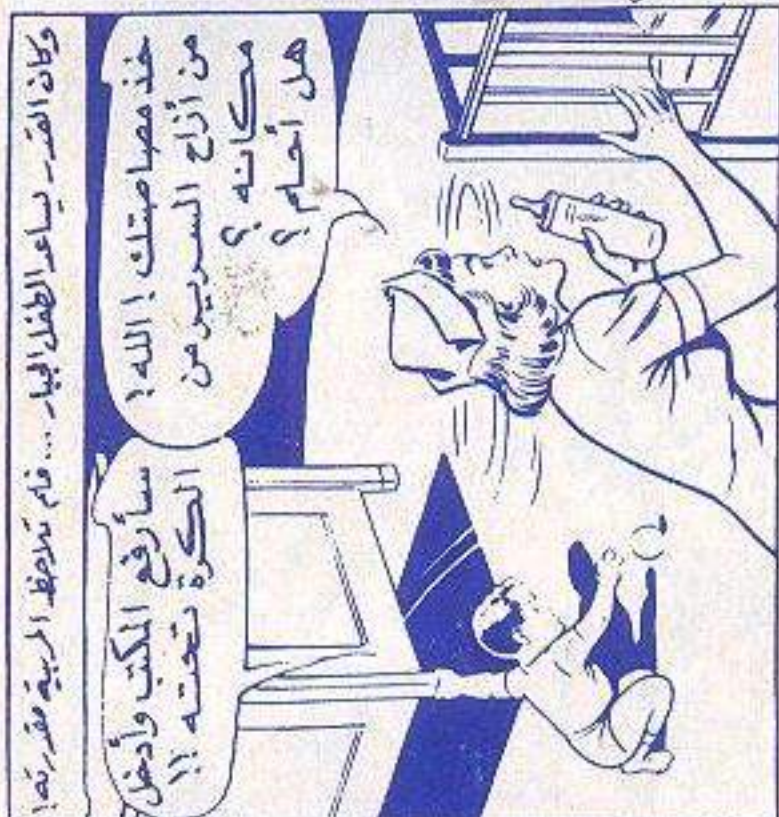 وكان القدر يساعد الطفل الجبار ... فلم تلاحظ المربية مقدرته!
خذ مصاصتك! الله!
من أزاح السرير من
مكانه؟
هل أحلم؟
سأرفع المكتب وأدخل
الكرة تحته!!